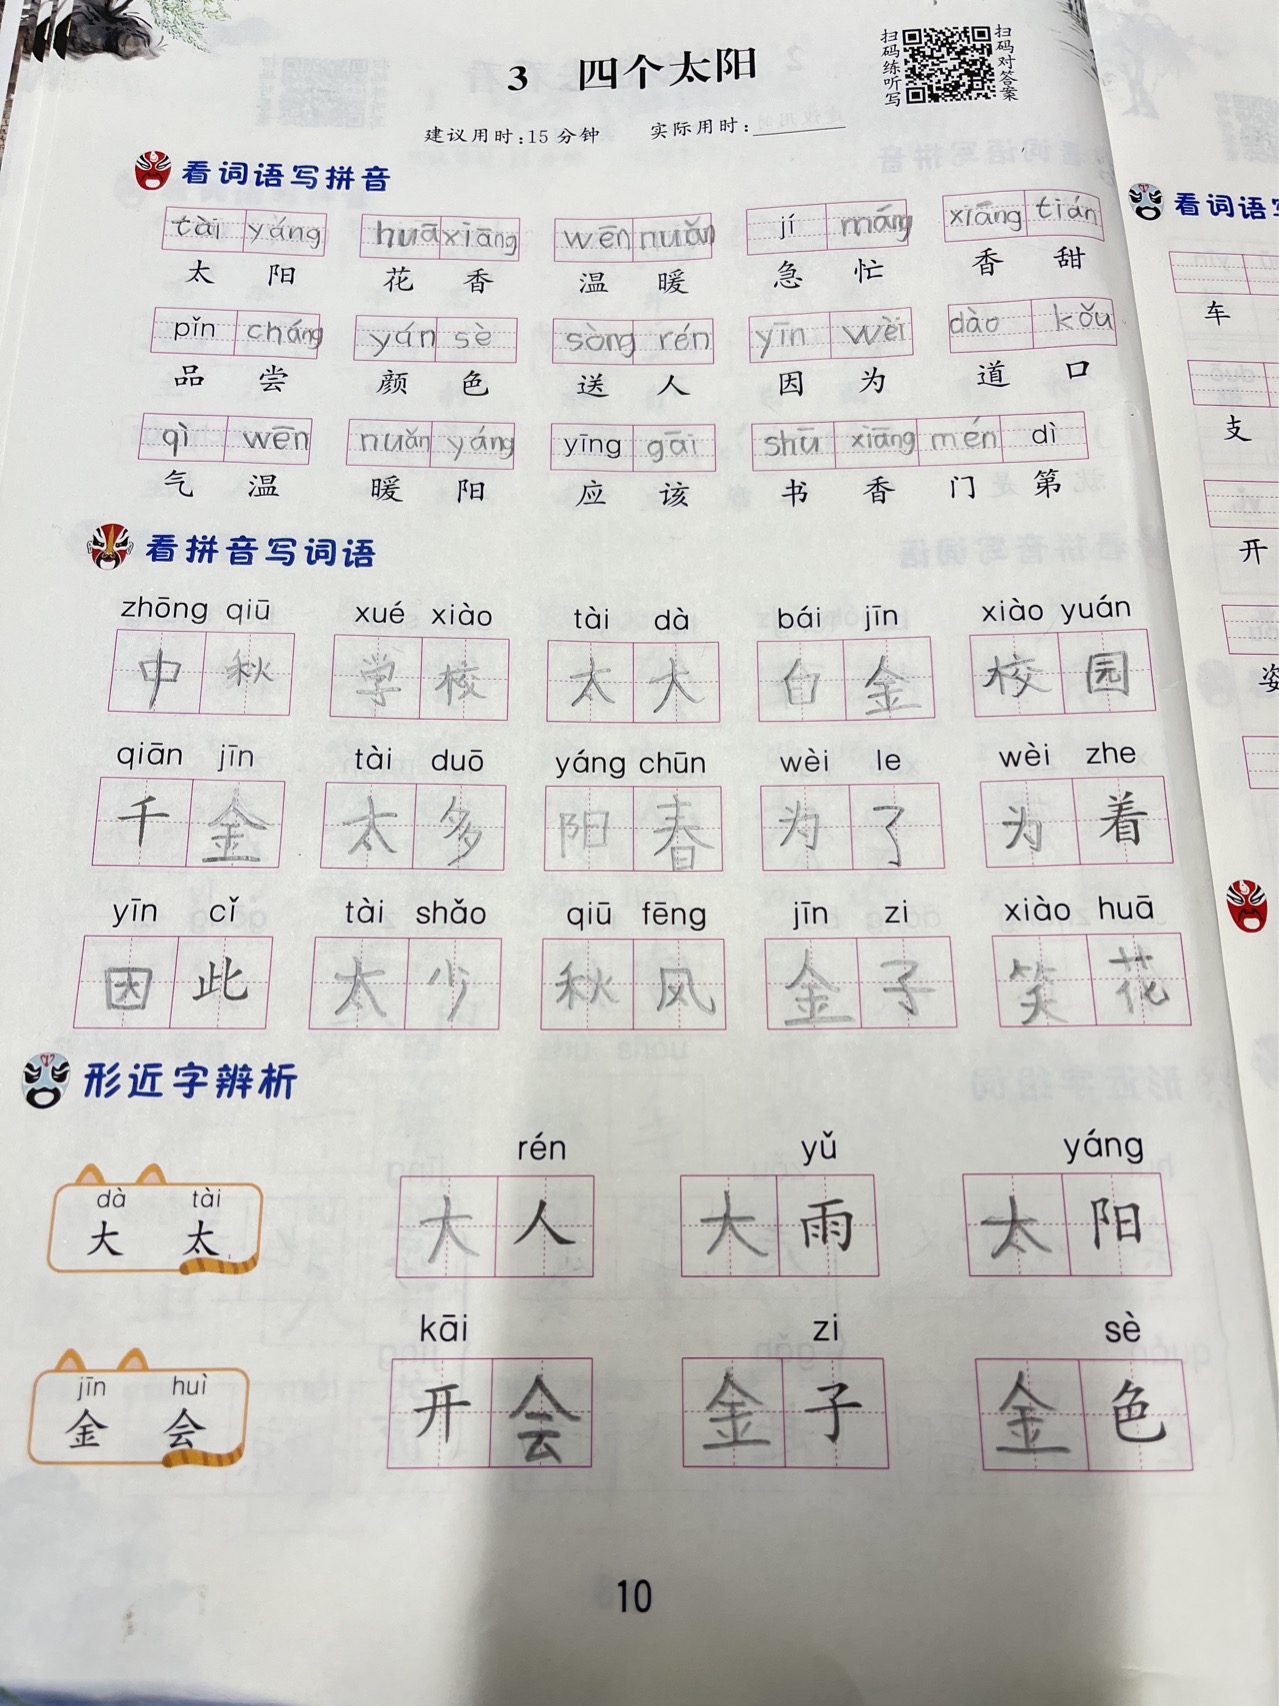 3 四个太阳
扫码练听写
扫码对答案
建议用时:15分钟 实际用时:
看词语写拼音
tài yáng huā xiāng wēn nuǎn jí máng xiāng tián
太 阳 花 香 温 暖 急 忙 香 甜
pǐn cháng yán sè sòng rén yīn wèi dào kǒu
品 尝 颜 色 送 人 因 为 道 口
qì wēn nuǎn yáng yīng gāi shū xiāng mén dì
气 温 暖 阳 应 该 书 香 门 第
看拼音写词语
zhōng qiū xué xiào tài dà bái jīn xiào yuán
中 秋 学 校 太 大 白 金 校 园
qiān jīn tài duō yáng chūn wèi le wèi zhe
千 金 太 多 阳 春 为 了 为 着
yīn cǐ tài shǎo qiū fēng jīn zi xiào huā
因 此 太 少 秋 风 金 子 笑 花
形近字辨析
rén yǔ yáng
dà tài
大 太 大 人 大 雨 太 阳
kāi zi sè
jīn huì
金 会 开 会 金 子 金 色
10
看词语写
车
支
开
姿